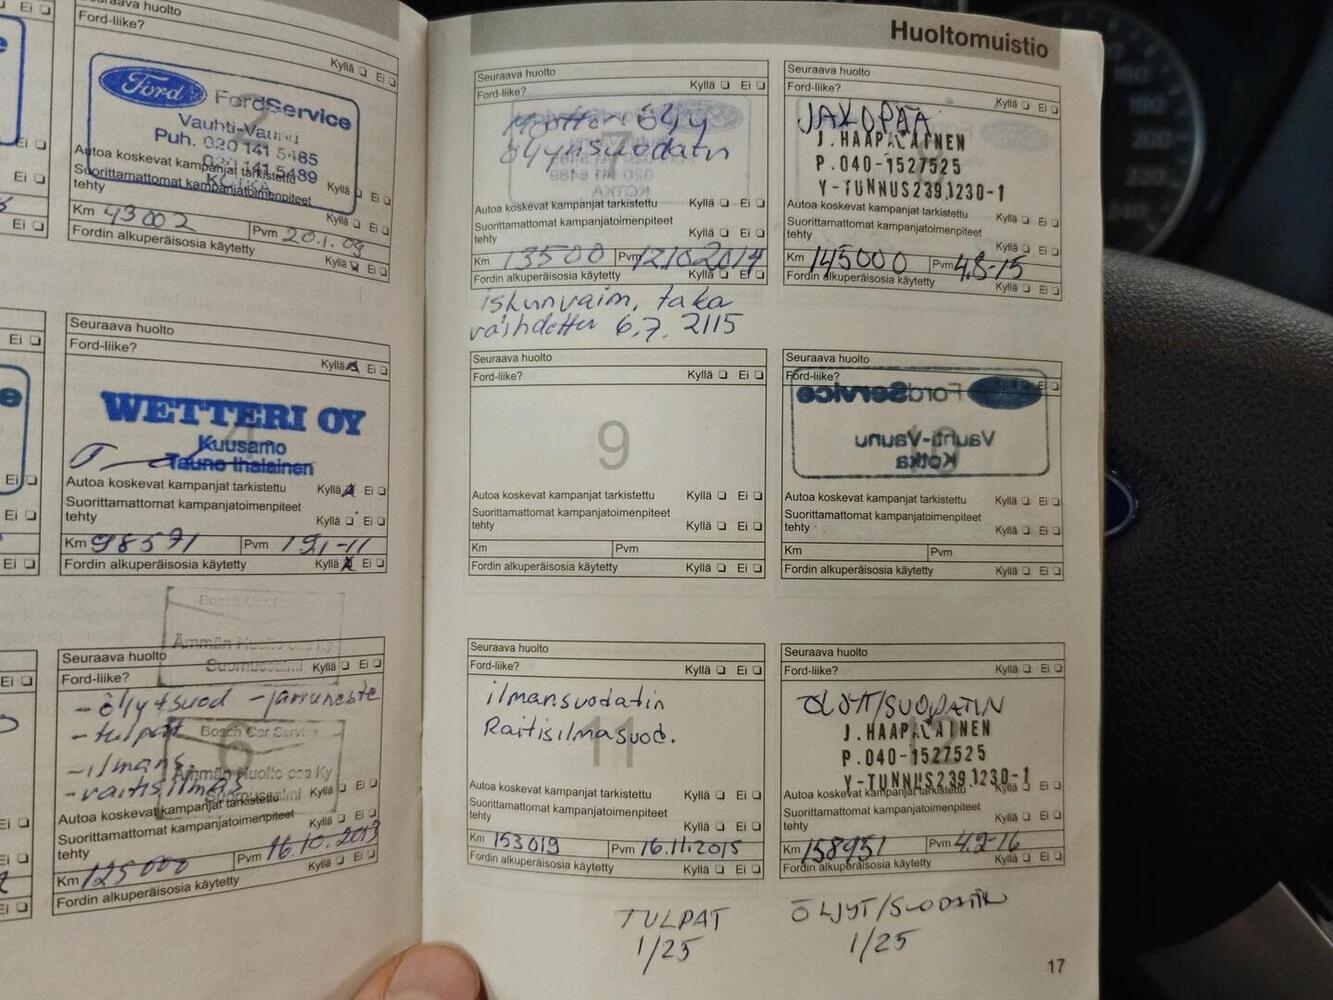 Huoltomuistio
Ei
Seuraava huolto
Ford-liike?
Kyllä Ei
2
Ford FordService
Vauhti-Vaunu
Puh. 020 141 5485
020 141 5489
KOTKA
Autoa koskevat kampanjat tarkistettu
Kyllä Ei
Suorittamattomat kampanjatoimenpiteet
tehty
Kyllä Ei
Km 43002 Pvm 20.1.09
Fordin alkuperäisosia käytetty
Kyllä Ei
Seuraava huolto
Ford-liike?
Kyllä Ei
4
WETTERI OY
Kuusamo
Tauno Ihalainen
Autoa koskevat kampanjat tarkistettu Kyllä Ei
Suorittamattomat kampanjatoimenpiteet
tehty Kyllä Ei
Km 98591 Pvm 19.1-11
Fordin alkuperäisosia käytetty Kyllä Ei
Bosch Car
Ämmän Huolto osa Ky
Suomussalmi
Seuraava huolto
Ford-liike?
Kyllä Ei
6
- öljy+suod - jarruneste
- tulpat
- ilmans.
- raitisilmas
Bosch Car Service
Ämmän Huolto osa Ky
Suomussalmi
Autoa koskevat kampanjat tarkistettu
Kyllä Ei
Suorittamattomat kampanjatoimenpiteet
tehty
Kyllä Ei
Km 125000 Pvm 16.10.2013
Fordin alkuperäisosia käytetty
Kyllä Ei
Seuraava huolto
Ford-liike? Kyllä Ei
7
Moottori öljy
öljynsuodatin
Autoa koskevat kampanjat tarkistettu Kyllä Ei
Suorittamattomat kampanjatoimenpiteet
tehty Kyllä Ei
Km 13500 Pvm 12.10.2014
Fordin alkuperäisosia käytetty Kyllä Ei
iskunvaim. taka
vaihdettu 6.7. 2115
Seuraava huolto
Ford-liike?
Kyllä Ei
JAKOPÄÄ
J.HAAPALAINEN
P.040-1527525
Y-TUNNUS2391230-1
Autoa koskevat kampanjat tarkistettu
Kyllä Ei
Suorittamattomat kampanjatoimenpiteet
tehty
Kyllä Ei
Km 145000 Pvm 4.8-15
Fordin alkuperäisosia käytetty
Kyllä Ei
Seuraava huolto
Ford-liike? Kyllä Ei
9
Autoa koskevat kampanjat tarkistettu Kyllä Ei
Suorittamattomat kampanjatoimenpiteet
tehty Kyllä Ei
Km Pvm
Fordin alkuperäisosia käytetty Kyllä Ei
Seuraava huolto
Ford-liike?
Kyllä Ei
10
FordService
Vauhti-Vaunu
Kotka
Autoa koskevat kampanjat tarkistettu Kyllä Ei
Suorittamattomat kampanjatoimenpiteet
tehty Kyllä Ei
Km Pvm
Fordin alkuperäisosia käytetty Kyllä Ei
Seuraava huolto
Ford-liike? Kyllä Ei
11
ilmansuodatin
Raitisilmasuod.
Autoa koskevat kampanjat tarkistettu Kyllä Ei
Suorittamattomat kampanjatoimenpiteet
tehty Kyllä Ei
Km 153019 Pvm 16.11.2015
Fordin alkuperäisosia käytetty Kyllä Ei
Seuraava huolto
Ford-liike? Kyllä Ei
ÖLJYT/SUODATIN
J.HAAPALAINEN
P.040-1527525
Y-TUNNUS2391230-1
Autoa koskevat kampanjat tarkistettu Kyllä Ei
Suorittamattomat kampanjatoimenpiteet
tehty Kyllä Ei
Km 158951 Pvm 4.2-16
Fordin alkuperäisosia käytetty Kyllä Ei
TULPAT
1/25
ÖLJYT/SUODATIN
1/25
17
160
180
200
220
240